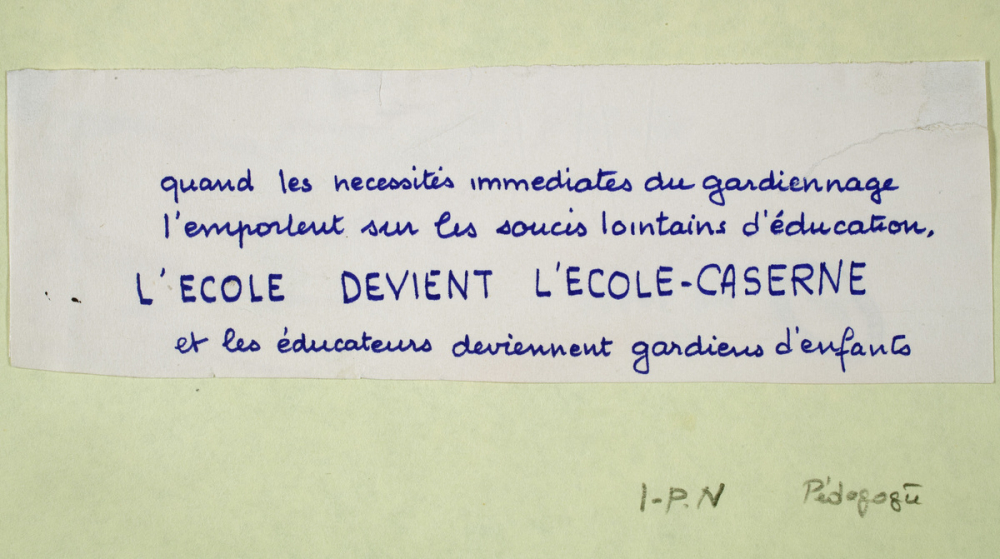 quand les necessités immediates du gardiennage
l'emportent sur les soucis lointains d'éducation,
L'ECOLE DEVIENT L'ECOLE-CASERNE
et les éducateurs deviennent gardiens d'enfants
I-P.N Pédagogie